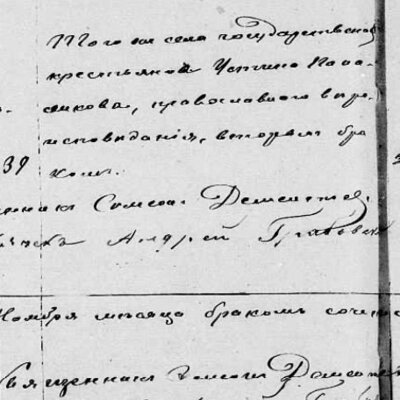 Того же села государственной
крестьянов Устина Ка
сикова, православного веро-
исповедания, вторымъ бра
39 комъ.
Симеонъ Дементьев
Андрей Грабовск
Ноября месяца бракомъ сочета
Священникъ Симеонъ Дементьев